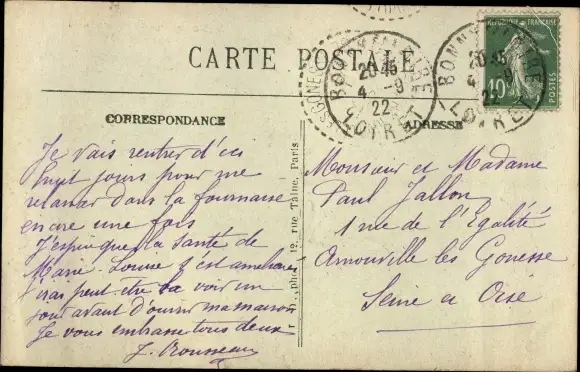 CARTE POSTALE
RÉPUBLIQUE FRANÇAISE
10
POSTES
BONNY-S-LOIRE
20 45
4 - 9
22
LOIRET
BONNY-S-LOIRE
20 45
4 - 9
22
LOIRET
CORRESPONDANCE
Je vais rentrer d'ici
huit jours pour me
relancer dans la fournaise
encore une fois
J'espère que la santé de
Marie Louise s'est améliorée
j'irai peut-être la voir un
jour avant d'ouvrir ma maison
Je vous embrasse tous deux
J. Rousseau
12, rue Taine, Paris
ADRESSE
Monsieur et Madame
Paul Jallon
1 rue de l'Egalité
Arnouville les Gonesse
Seine et Oise